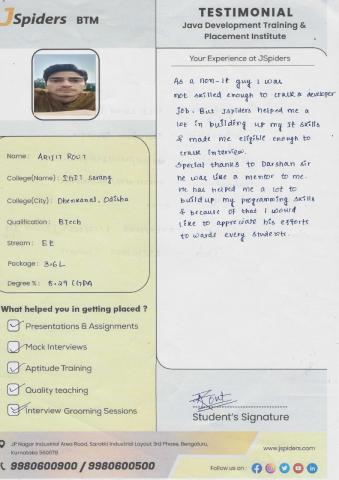 JSpiders BTM
TESTIMONIAL
Java Development Training &
Placement Institute
Your Experience at JSpiders
As a non-it guy I was
not skilled enough to crack a developer
job. But Jspiders helped me a
lot in building up my it skills
& made me eligible enough to
crack interview.
Special thanks to Darshan sir
he was like a mentor to me.
He has helped me a lot to
build up my programming skills
& because of that I would
like to appreciate his efforts
towards every students.
Name : ARIJIT ROUT
College(Name) : IGIT sarang
College(City) : Dhenkanal, Odisha
Qualification : BTech
Stream : EE
Package : 3.6L
Degree % : 8.29 CGPA
What helped you in getting placed ?
Presentations & Assignments
Mock Interviews
Aptitude Training
Quality teaching
Interview Grooming Sessions
Rout
Student's Signature
JP Nagar Industrial Area Road, Sarakki Industrial Layout 3rd Phase, Bengaluru,
Karnataka 560078
9980600900 / 9980600500
www.jspiders.com
Follow us on :